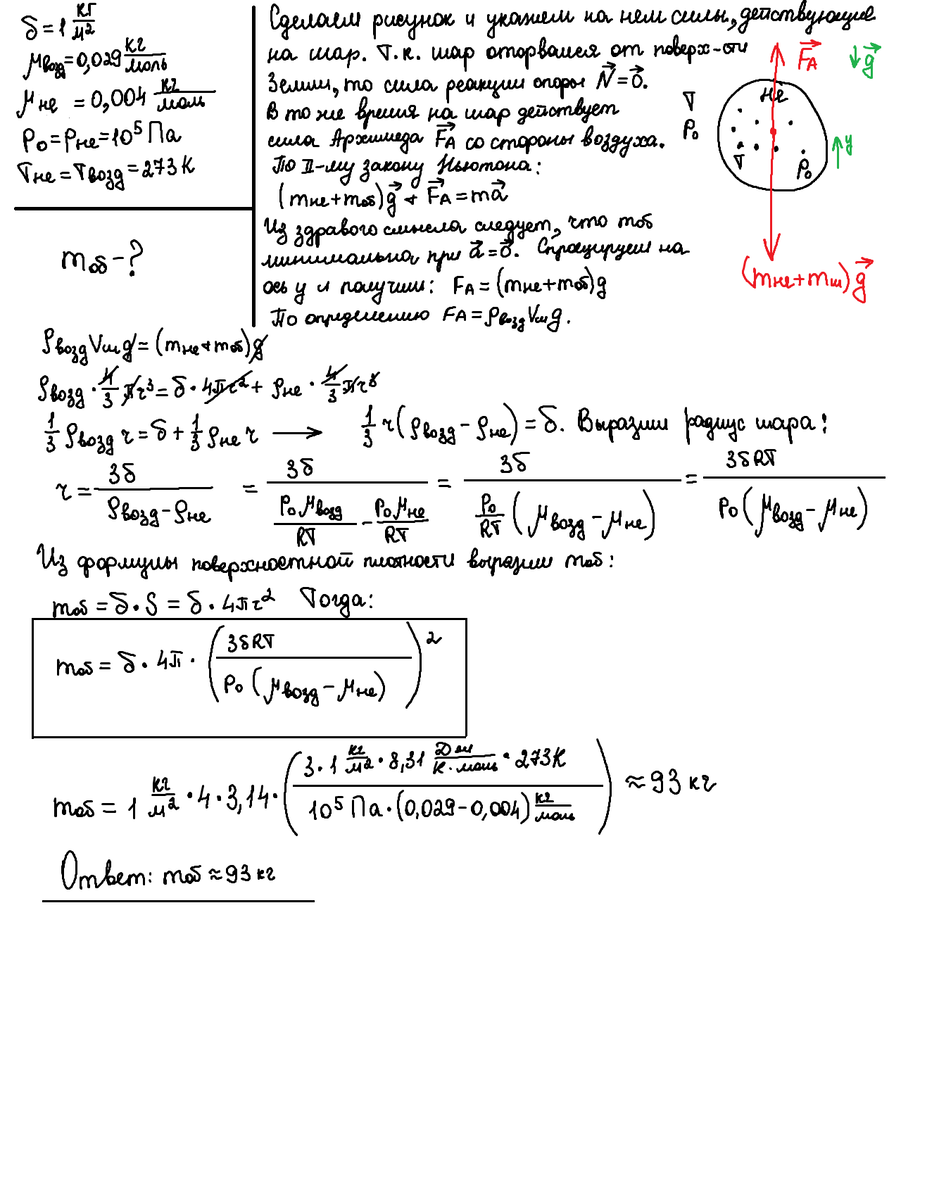 δ = 1 кг/м²
μвозд = 0,029 кг/моль
μHe = 0,004 кг/моль
P₀ = PHe = 10⁵ Па
THe = Tвозд = 273 К
mоб - ?
Сделаем рисунок и укажем на нем силы, действующие
на шар. Т.к. шар оторвался от поверх-сти
Земли, то сила реакции опоры N⃗ = 0⃗.
В то же время на шар действует
сила Архимеда F⃗A со стороны воздуха.
По II-му закону Ньютона:
(mHe + mоб)g⃗ + F⃗A = ma⃗
Из здравого смысла следует, что mоб
минимальна при a⃗ = 0⃗. Спроецируем на
ось y и получим: FA = (mHe + mоб)g
По определению FA = ρвозд Vш g.
F⃗A
g⃗
He
T
P₀
y
T
P₀
(mHe + mш)g⃗
ρвозд Vш g = (mHe + mоб)g
ρвозд · 4/3 πr³ = δ · 4πr² + ρHe · 4/3 πr³
1/3 ρвозд r = δ + 1/3 ρHe r ⟶ 1/3 r(ρвозд - ρHe) = δ. Выразим радиус шара:
r = 3δ/(ρвозд - ρHe) = 3δ/(P₀μвозд/RT - P₀μHe/RT) = 3δ/(P₀/RT (μвозд - μHe)) = 3δRT/(P₀(μвозд - μHe))
Из формулы поверхностной плотности выразим mоб:
mоб = δ · S = δ · 4πr² Тогда:
mоб = δ · 4π · (3δRT/(P₀(μвозд - μHe)))²
mоб = 1 кг/м² · 4 · 3,14 · (3 · 1 кг/м² · 8,31 Дж/К·моль · 273К / 10⁵ Па · (0,029 - 0,004) кг/моль) ≈ 93 кг
Ответ: mоб ≈ 93 кг